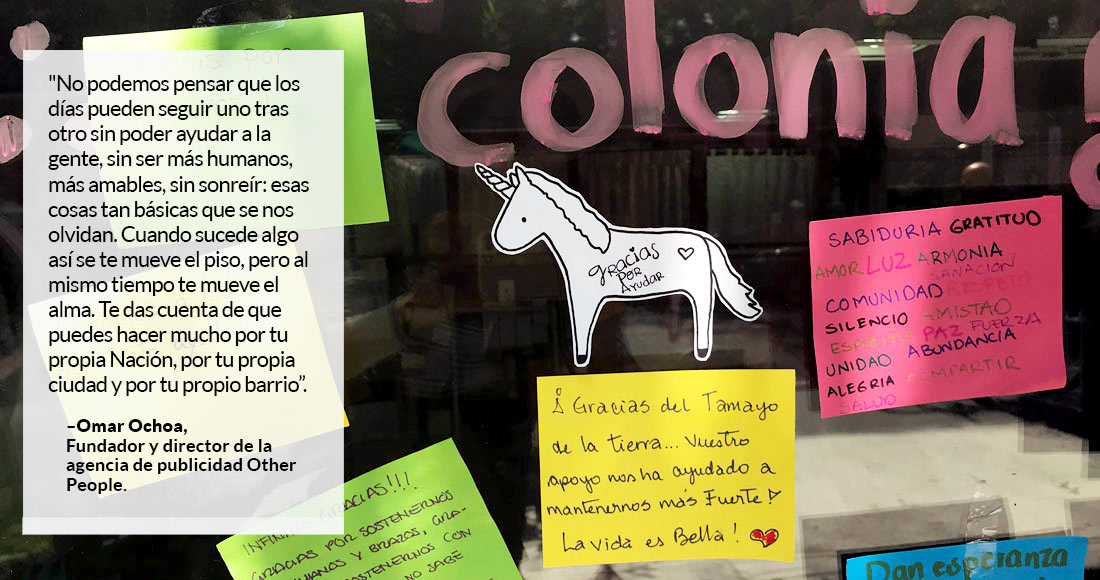 "No podemos pensar que los
días pueden seguir uno tras
otro sin poder ayudar a la
gente, sin ser más humanos,
más amables, sin sonreír: esas
cosas tan básicas que se nos
olvidan. Cuando sucede algo
así se te mueve el piso, pero al
mismo tiempo te mueve el
alma. Te das cuenta de que
puedes hacer mucho por tu
propia Nación, por tu propia
ciudad y por tu propio barrio”.
–Omar Ochoa,
Fundador y director de la
agencia de publicidad Other
People.
colonia
gracias
por
Ayudar
SABIDURIA GRATITUD
AMOR LUZ ARMONIA
SANACION
COMUNIDAD RESPETO
SILENCIO AMISTAD
PAZ FUERZA
UNIDAD ABUNDANCIA
ALEGRIA COMPARTIR
SALUD
¡ Gracias del Tamayo
de la tierra... Vuestro
apoyo nos ha ayudado a
mantenernos más Fuerte!
La vida es Bella!
GRACIAS!!!
GRACIAS POR SOSTENERNOS
Y BRAZOS, GRA-
SOSTENERNOS CON
NO SABE
Dan esperanza